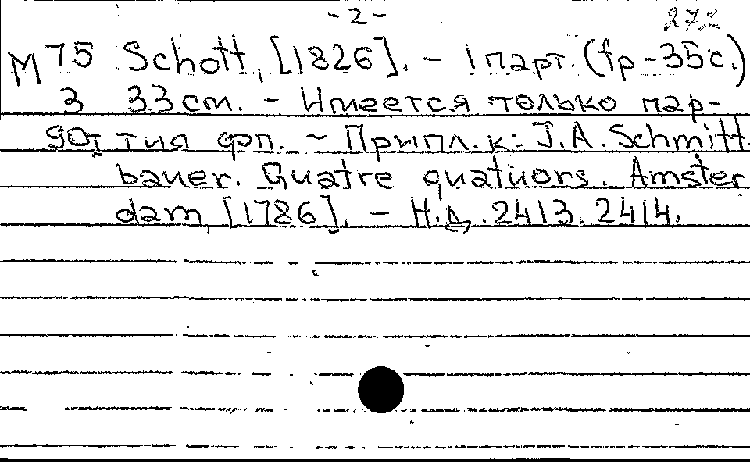 - 2 -
272
М 75 Schott, [1826]. - 1 парт. (fp - 35 с.)
3 33 см. - Имеется только пар-
90I тия фп. - Припл. к: J.A. Schmitt
bauer. Quatre quatuors. Amster
dam, [1786]. - Н.д. 2413. 2414.